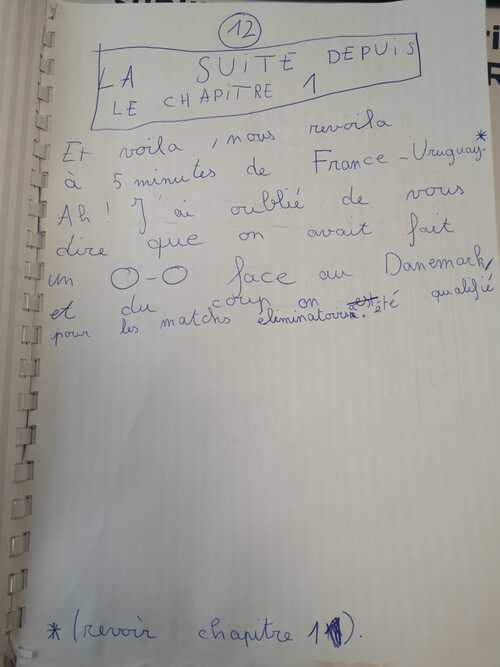 12
LA SUITE DEPUIS
LE CHAPITRE 1
Et voila, nous revoila
à 5 minutes de France-Uruguay.*
Ah! J'ai oublié de vous
dire que on avait fait
un 0-0 face au Danemark,
et du coup on a été qualifié
pour les matchs eliminatoires.
* (revoir chapitre 1).